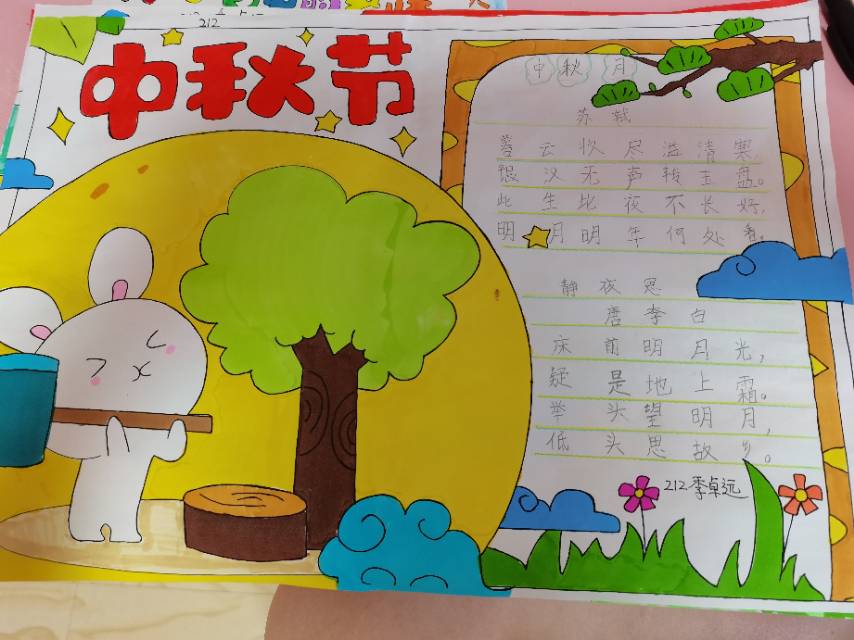 212
中秋节
中秋月
苏轼
暮云收尽溢清寒,
银汉无声转玉盘。
此生比夜不长好,
明月明年何处看。
静夜思
唐李白
床前明月光,
疑是地上霜。
举头望明月,
低头思故乡。
212季卓远